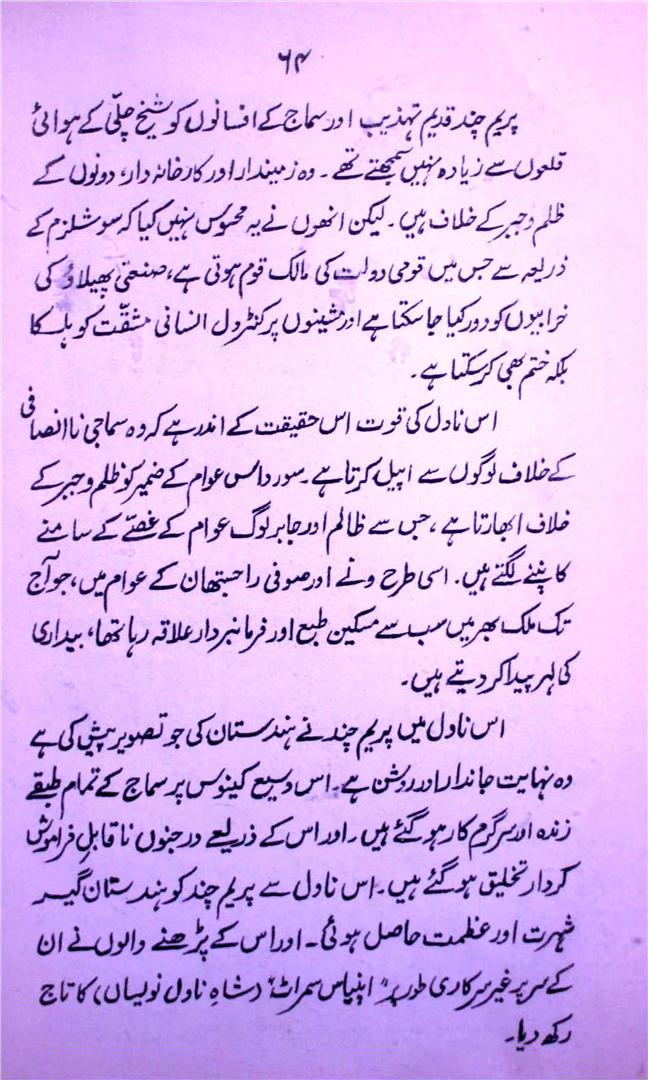 ۶۴
پریم چند قدیم تہذیب اور سماج کے افسانوں کو شیخ چلّی کے ہوائی
قلعوں سے زیادہ نہیں سمجھتے تھے ۔ وہ زمیندار اور کارخانہ دار، دونوں کے
ظلم و جبر کے خلاف ہیں ۔ لیکن انھوں نے یہ محسوس نہیں کیا کہ سوشلزم کے
ذریعہ سے جس میں قومی دولت کی مالک قوم ہوتی ہے، صنعتی پھیلاؤ کی
خرابیوں کو دور کیا جا سکتا ہے اور مشینوں پر کنٹرول انسانی مشقّت کو ہلکا
بلکہ ختم بھی کر سکتا ہے ۔
اس ناول کی قوت اس حقیقت کے اندر ہے کہ وہ سماجی ناانصافی
کے خلاف لوگوں سے اپیل کرتا ہے ۔ سورداس عوام کے ضمیر کو ظلم و جبر کے
خلاف ابھارتا ہے ، جس سے ظالم اور جابر لوگ عوام کے غصّے کے سامنے
کانپنے لگتے ہیں ۔ اسی طرح ونے اور صوفی راجستھان کے عوام میں، جو آج
تک ملک بھر میں سب سے مسکین طبع اور فرمانبردار علاقہ رہا تھا، بیداری
کی لہر پیدا کر دیتے ہیں ۔
اس ناول میں پریم چند نے ہندستان کی جو تصویر پیش کی ہے
وہ نہایت جاندار اور روشن ہے ۔ اس وسیع کینوس پر سماج کے تمام طبقے
زندہ اور سرگرم کار ہو گئے ہیں ۔ اور اس کے ذریعے درجنوں ناقابلِ فراموش
کردار تخلیق ہو گئے ہیں ۔ اس ناول سے پریم چند کو ہندستان گیر
شہرت اور عظمت حاصل ہوئی ۔ اور اس کے پڑھنے والوں نے ان
کے سر پر غیر سرکاری طور پر " اپنیاس سمراٹ " (شاہِ ناول نویساں) کا تاج
رکھ دیا ۔